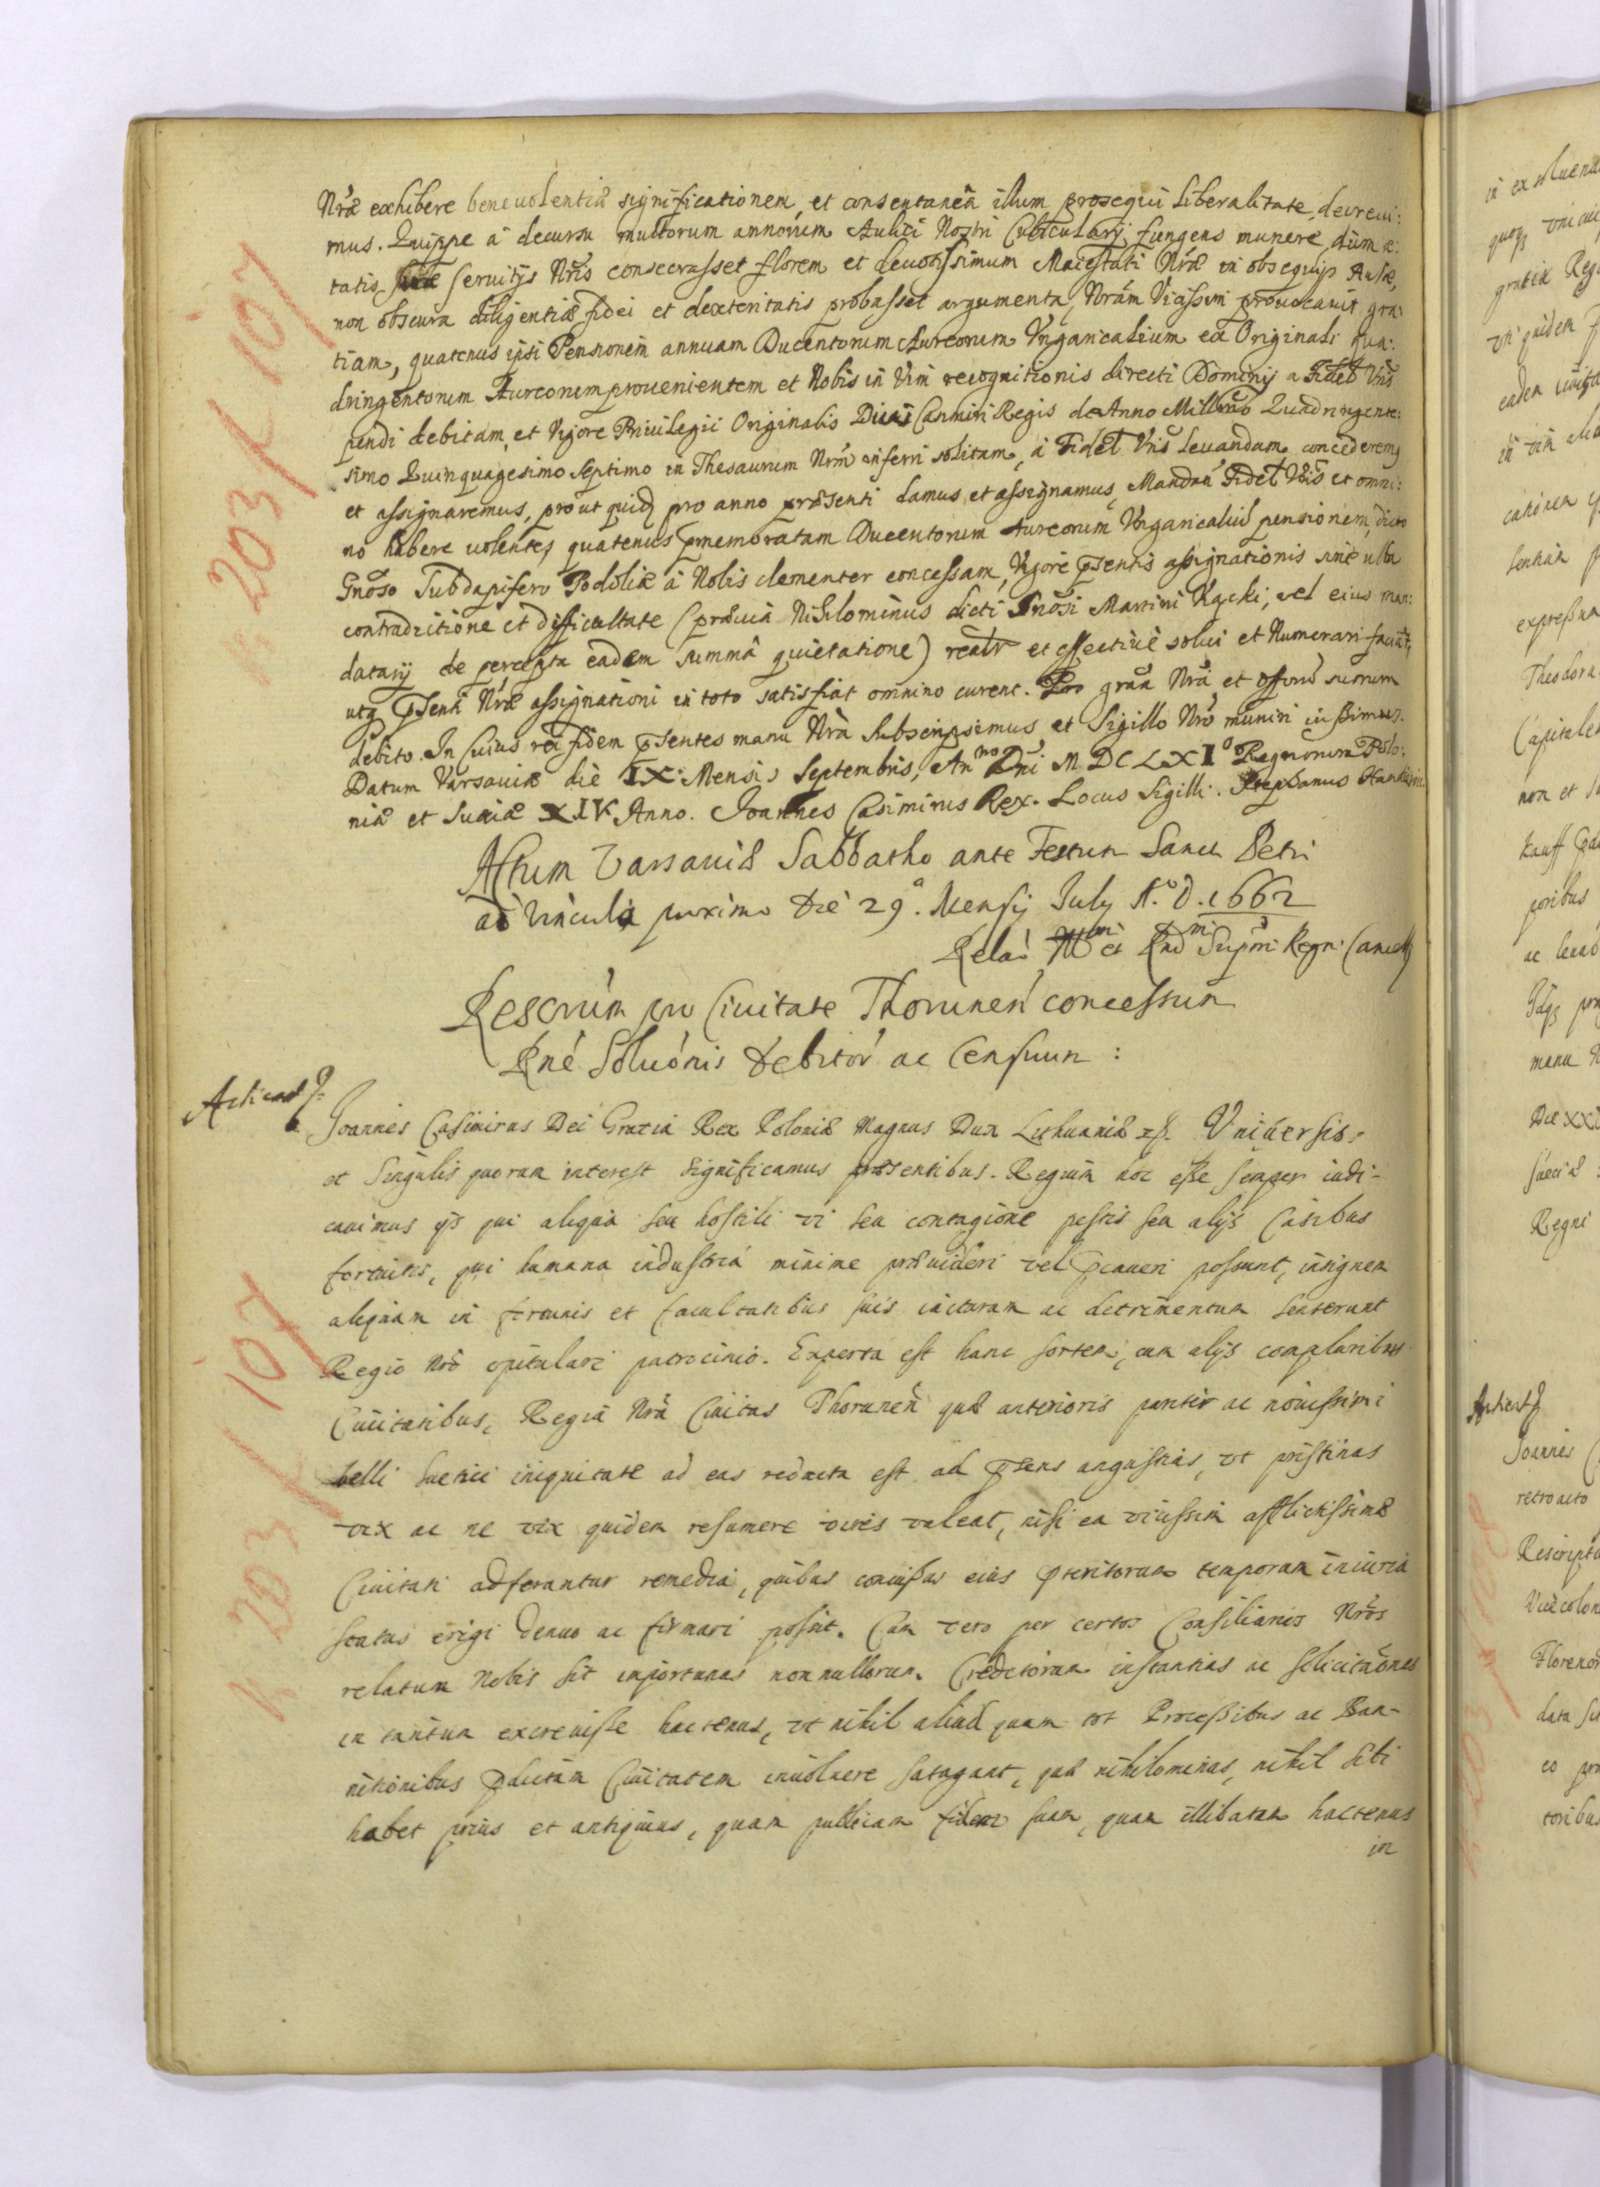 Nrã exhibere beneuolentiæ significationem, et consentaneâ illum prosequi liberalitate, decreui:
mus. Quippe à decursu multorum annorum Aulici Nostri Cubicularij fungens munere, dum æ:
tatis suæ seruitijs Nris consecrasset florem et deuotissimum Maiestati Nræ in obsequijs Aulæ,
non obscura diligentiæ fidei et dexteritatis probasset argumenta, Nram vicissim prouocauit gra:
tiam, quatenus ipsi Pensionem annuam Ducentorum Aureorum Vngaricalium ex Originali qua:
dringentorum Aureorum prouenientem et Nobis in Vim recognitionis directi Dominij a Fidel Vris
pendi debitam, et Vigore Priuilegii Originalis Diui Casimiri Regis de Anno Millmo Quadringente:
simo Quinquagesimo Septimo in Thesaurum Nrm inferri solitam, à Fidel Vris leuandam concederemq
et assignaremus, prout quidq pro anno præsenti damus et assignamus, Mandan Fidel Vris et omni:
no habere uolentes, quatenus pmemoratam Ducentorum Aureorum Vngaricaliu pensionem, dicto
Gnoso Subdapifero Podoliæ à Nobis clementer concessam, Vigore psentis assignationis sine ulla
contradicitione et difficultate (præuia Nihilominus dicti Gnosi Martini Kącki, vel eius man:
datarij de percepta eadem summâ quietatione) realr et effectiuè solui et Numerari faciāt,
utq psenti Nræ assignationi in toto satisfiat omnino curent. Pro grãa Nrã et officij suorum
debito. In Cuius rei fidem psentes manu Nrà subscripsimus, et Sigillo Nro muniri iussimus.
Datum Varsauiæ die IX. Mensis Septembris, Anno Dni M DC LXIº Regnorum Polo:
niæ et Sueciæ XIV Anno. Joannes Casimirus Rex. Locus Sigilli. Stephanus
Actum Varsauiæ Sabbatho ante Festum Sancti Petri
ad Vincula proximo die 29ª. Mensis July Aº. D. 1662
Relaô et Rndi Supmi Regni Cancell
Rescrũm pro Ciuitate Thorunen concessum
Rne Soluonis debitor ac Censuum:
Acticat
Joannes Casimirus Dei Gratia Rex Poloniæ Magnus Dux Lithuaniæ etc. Vniuersis,
et Singulis quorum interest significamus præsentibus. Regium hoc esse semper iudi-
cauimus ijs qui aliqua seu hostili vi seu contagione pestis seu alijs Casibus
fortuitis, qui humana industria minime præuideri vel pcaueri possunt, insignem
aliquam in fortunis et facultatibus suis iacturam ac detrimentum senserunt
Regio Nrõ opitulari patrocinio. Experta est hanc sortem, cum alijs compluribus
Ciuitatibus, Regia Nrã Ciuitas Thorunen quæ anterioris pariter ac nouissimi
belli Suetici iniquitate ad eas redacta est ad psens angustias, vt pristinas
vix ac ne vix quidem resumere vires valeat, nisi ea vicissim afflictissimæ
Ciuitati adferantur remedia, quibus conuissus eius pteritorum temporum iniuria
status erigi denuo ac firmari possit. Cum vero per certos Consiliarios Nros
relatum Nobis sit importunas nonnullorum Creditorum instantias ac solicitaõnes
in tantum excreuisse hactenus, vt nihil aliud quam tot Processibus ac Ban-
nitionibus pdictam Ciuitatem inuoluere satagant, quæ nihilominus, nihil sibi
habet prius et antiquius, quam publicam fidem suam, quam illibatam hactenus
in
n 203 k 107
n 203 k 107